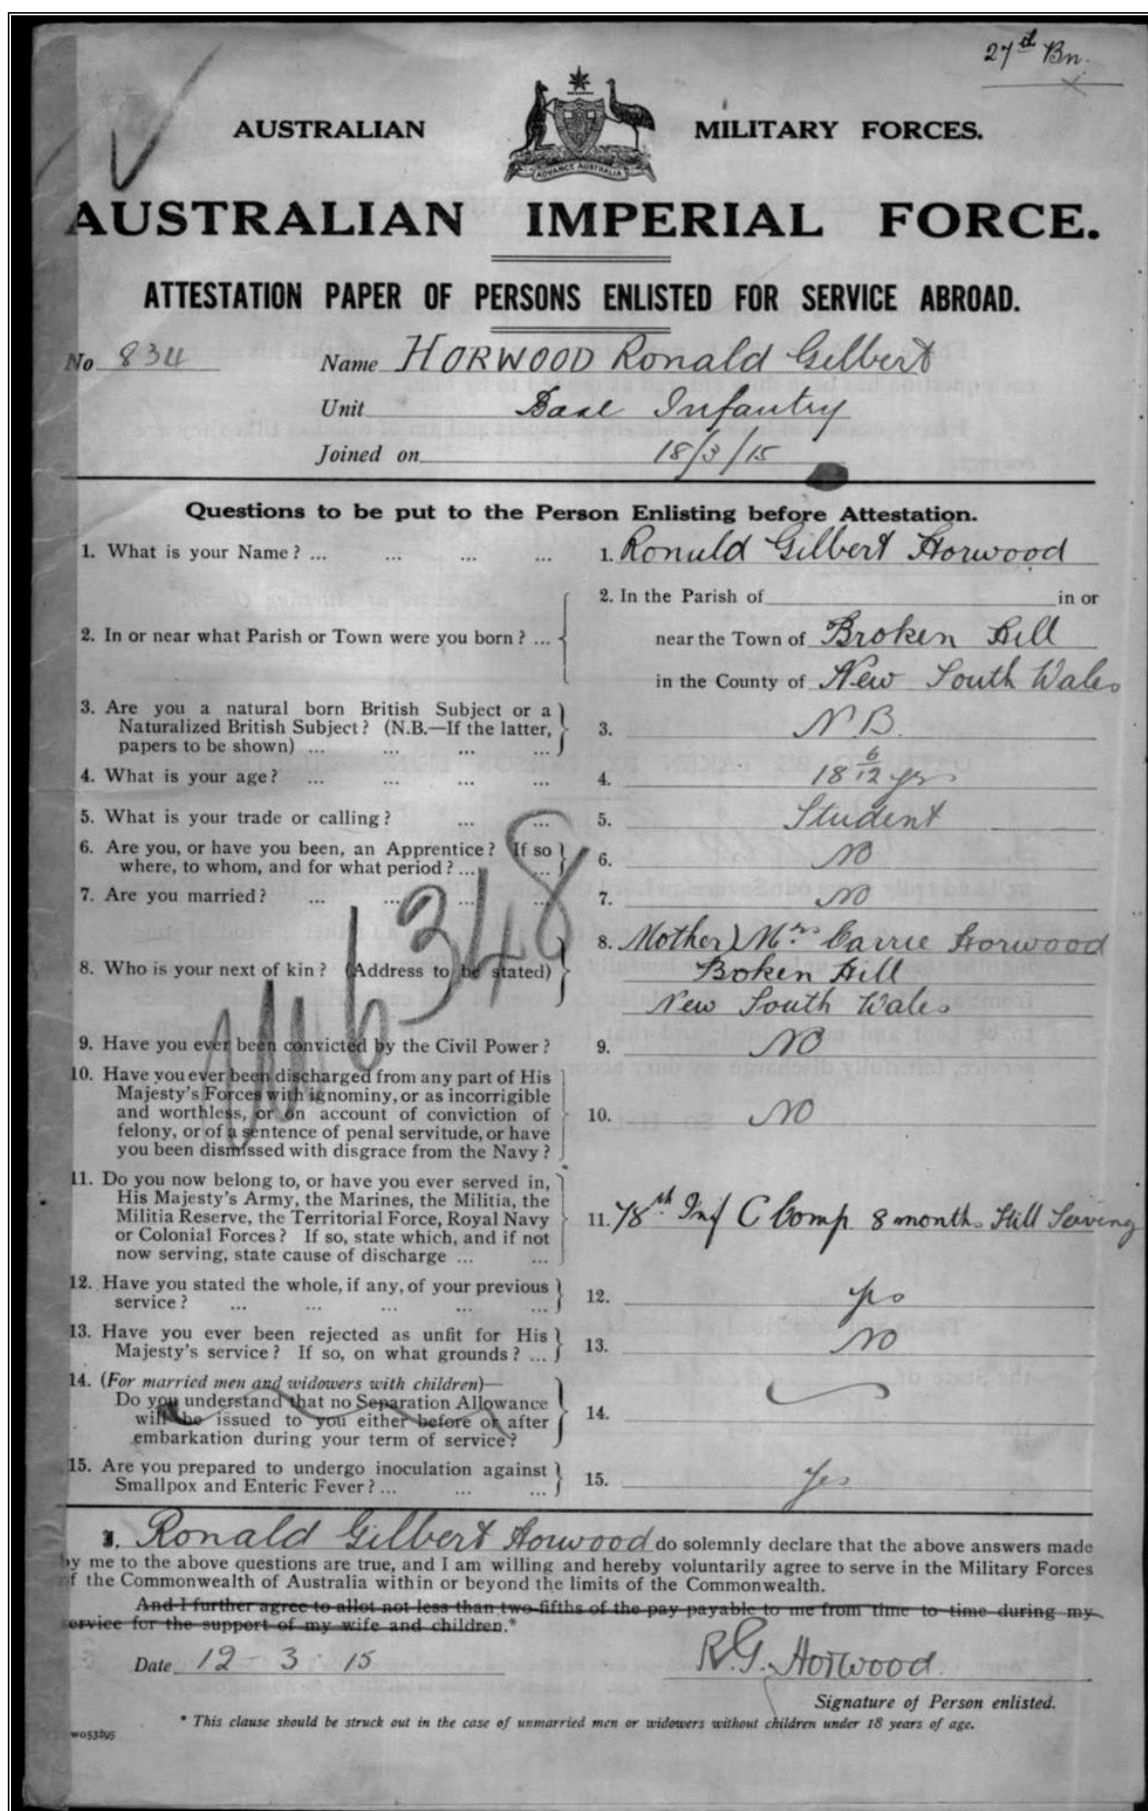 27th Bn.
AUSTRALIAN MILITARY FORCES.
ADVANCE AUSTRALIA
AUSTRALIAN IMPERIAL FORCE.
ATTESTATION PAPER OF PERSONS ENLISTED FOR SERVICE ABROAD.
No 834 Name HORWOOD Ronald Gilbert
Unit Base Infantry
Joined on 18/3/15
Questions to be put to the Person Enlisting before Attestation.
1. What is your Name? ... ... ... ... 1. Ronald Gilbert Horwood
2. In the Parish of in or
2. In or near what Parish or Town were you born? ... near the Town of Broken Hill
in the County of New South Wales
3. Are you a natural born British Subject or a
Naturalized British Subject? (N.B.—If the latter, 3. N.B.
papers to be shown) ... ... ... ...
4. What is your age? ... ... ... ... 4. 18 6/12 yrs
5. What is your trade or calling? ... ... 5. Student
6. Are you, or have you been, an Apprentice? If so
where, to whom, and for what period? ... ... 6. NO
7. Are you married? ... ... ... 7. NO
8. Mother) Mrs Carrie Horwood
8. Who is your next of kin? (Address to be stated) Boken Hill
New South Wales
9. Have you ever been convicted by the Civil Power? 9. NO
10. Have you ever been discharged from any part of His
Majesty's Forces with ignominy, or as incorrigible
and worthless, or on account of conviction of 10. NO
felony, or of a sentence of penal servitude, or have
you been dismissed with disgrace from the Navy?
11. Do you now belong to, or have you ever served in,
His Majesty's Army, the Marines, the Militia, the
Militia Reserve, the Territorial Force, Royal Navy 11. 78th Inf C Comp 8 months Still Serving
or Colonial Forces? If so, state which, and if not
now serving, state cause of discharge ... ...
12. Have you stated the whole, if any, of your previous
service? ... ... ... ... ... 12. yes
13. Have you ever been rejected as unfit for His
Majesty's service? If so, on what grounds? ... 13. NO
14. (For married men and widowers with children)—
Do you understand that no Separation Allowance
will be issued to you either before or after 14.
embarkation during your term of service?
15. Are you prepared to undergo inoculation against
Smallpox and Enteric Fever? ... ... ... 15. Yes
I, Ronald Gilbert Horwood do solemnly declare that the above answers made
by me to the above questions are true, and I am willing and hereby voluntarily agree to serve in the Military Forces
of the Commonwealth of Australia within or beyond the limits of the Commonwealth.
And I further agree to allot not less than two-fifths of the pay payable to me from time to time during my
service for the support of my wife and children.*
Date 12 - 3 - 15 R.G. Horwood
Signature of Person enlisted.
* This clause should be struck out in the case of unmarried men or widowers without children under 18 years of age.
WO53295